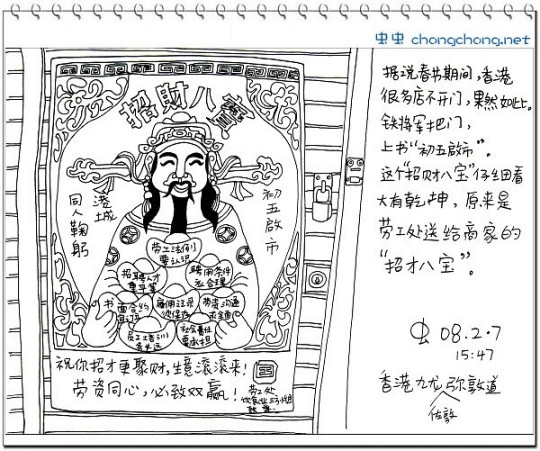 虫虫 chongchong.net
招財八寶
同人鞠躬
澄城
初五啟市
劳工法例
要认识
招聘人才
要平等
聘用条件
要合理
书面合约
雇佣记录
劳资沟通
员工培训
社会责任
要承担
祝你招才更聚财,生意滚滚来!
劳资同心,必致双赢!
劳工处
据说春节期间,香港
很多店不开门,果然如此。
铁将军把门,
上书“初五啟市”。
这个“招财八宝”仔细看
大有乾坤,原来是
劳工处送给商家的
“招才八宝”。
虫 08.2.7
15:47
香港九龙弥敦道
佐敦